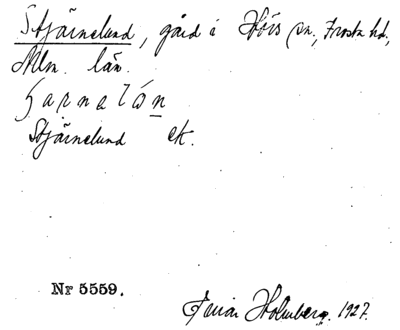 Stjärnelund, gård i Hörs sn, Frosta hd,
Mlm. län.
Stjärnelund ek.
Nr 5559.
Holmberg. 1927.